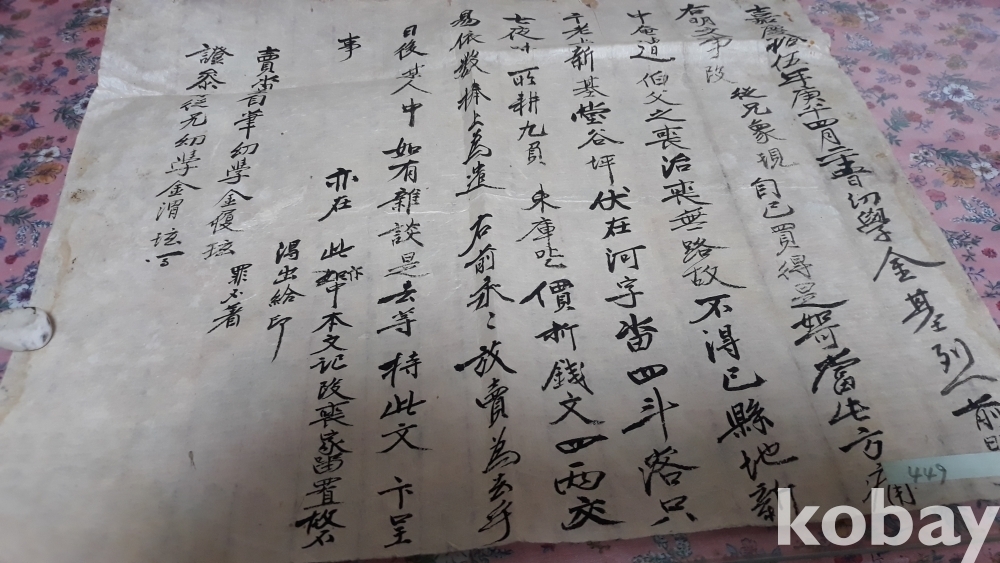 嘉慶拾伍年庚午四月二十日幼學金基烈前明
右明文事段從兄象現自己買得是如可當此方庄用
十奄逍伯父之喪治喪無路故不得已縣地新
千老小新基堂谷坪伏在河字畓四斗落只
七夜味所耕九負束庫乙價折錢文四兩交
易依數捧上為遣右前丞丞放賣為去乎
日後某人中如有雜談是去等持此文卞呈
事
亦在此卞本文記段喪家留置故不
得出給印
畓自筆幼學金 罪不著
證參從兄幼學金渭
449
kobay